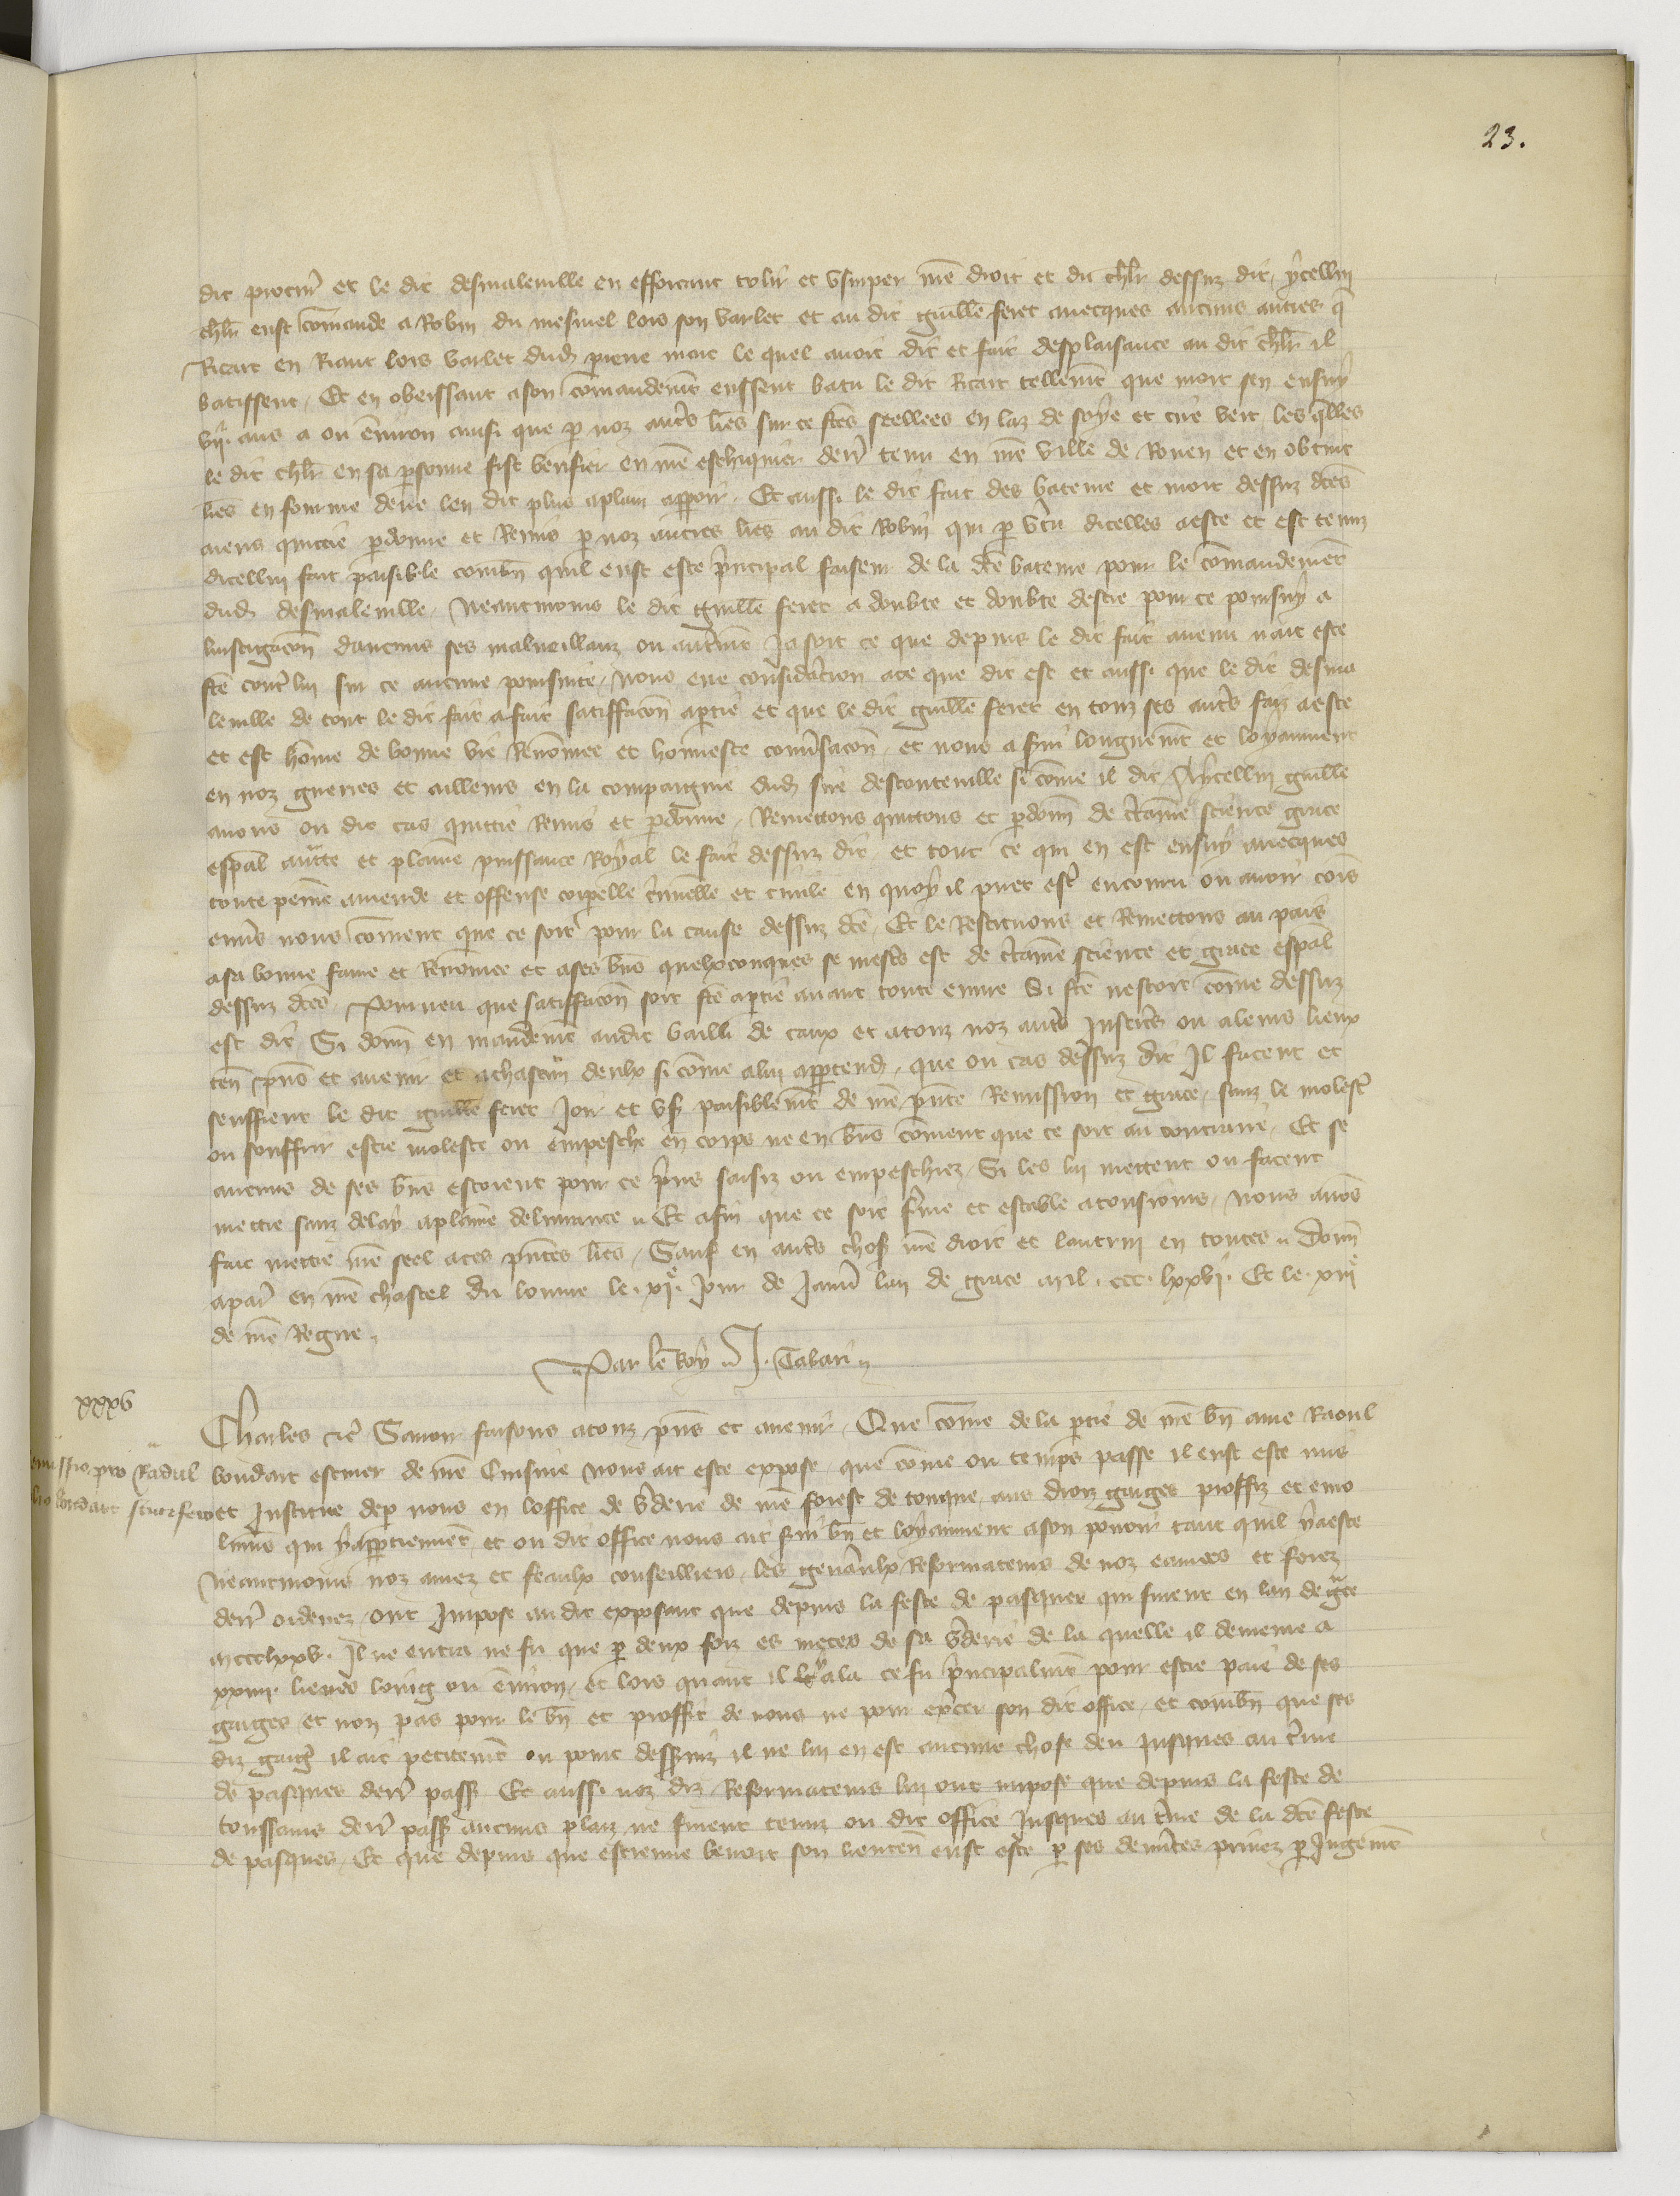 23.
dit procur̄ et le dit desmaleville en efforcant tolir et usurper nr̄e droit et du chlr̄ dessuz dit ycellui
chlr̄ eust cōmande a Robin du mesnuel lors son varlet et au dit guille feret avecques aucuns autres q̄
Ricart en Riaut lors varlet dud pierre mort le quel avoit dit et fait desplaisance au dit chlr̄ il
batissent Et en obeissant a son cōmandemt eussent batu le dit Ricart tellemt que mort sen ensuy
vii ans a ou environ ainsi que p noz autr̄s lr̄es sur ce fc̄es seellees en laz de soye et cire vert les q̄lles
le dit chlr̄ en sa p̱sonne fist verifier en nr̄e eschiquier derr̄ tenu en nr̄e ville de Rouen et en obtint
lr̄es en fourme deue len dit plus aplain apparoir Et aussi le dit fait des bateure et mort dessuz dc̄es
aiens quittie p̱donne et Remis p noz autres lr̄es au dit Robin qui p v̄tu dicelles a este et est tenuz
dicellui fait paisible combn̄ quil eust este p̄ncipal faiseur de la dc̄e bateure pour le cōmandemēt
dud desmaleville Neantmoins le dit guille feret a doubte et doubte destre pour ce poursuy a
linstigacōn daucuns ses malveillanz ou autremt Ja soit ce que depuis le dit fait avenu nait este
fc̄e contr̄ lui sur ce aucune poursuite Nous eue considr̄acion ace que dit est et aussi que le dit desma
leville de tout le dit fait a fait satiffacōn a p̱tie et que le dit guille feret en touz ses autr̄s faiz a este
et est hōme de bonne vie Renōmee et honneste conv̄sacōn et nous a s̄vi longuemt et loyaument
en noz guerres et ailleurs en la compaignie dud sire descouteville si cōme il dit A ycellui guille
avons ou dit cas quittie Remis et p̱donne Remettons quittons et p̱donn̄ de c̄taine science grace
esp̄al auct̄te et plaine puissance Royal le fait dessuz dit et tout ce qui en est ensuy avecques
toute peine amende et offense corporelle c̄minelle et civile en quoy il puet estr̄ encouru ou avoir cōis
envers nous coment que ce soit pour la cause dessuz dc̄e Et le Restituons et Remettons au pais
a sa bonne fame et Renōmee et a ses bn̄s quelxconques se mestr̄ est de c̄taine science et grace esp̄al
dessuz dc̄es Pourveu que satiffacōn soit fc̄e a p̱tie avant toute euvre Si fc̄e nestoit cōme dessuz
est dit Si donn̄ en mandemt audit bailli de caux et atouz noz autr̄s Justicr̄s ou aleurs lieux
ten̄ p̄ns et avenir et achascun deulx si cōme alui appartend que ou cas dessuz dit Il facent et
seuffrent le dit guille feret Joir et us̄ paisiblemt de nr̄e p̄nte Remission et grace sanz le molestr̄
ou souffrir estre moleste ou empesche en corps ne en bn̄s cōment que ce soit au contraire Et se
aucuns de ses bn̄s estoient pour ce p̄ns saisiz ou empeschiez Si les lui mettent ou facent
mettre sanz delay aplaine delivrance Et afin que ce soit f̄me et estable atousjours Nous avōs
fait mettre nr̄e seel aces p̄ntes lr̄es Sauf en autr̄s chos̄ nr̄e droit et lautrui en toutes Donn̄
apar̄ en nr̄e chastel du louvre le xie Jour de Janv̄ lan de grace mil ccc lxxvi Et le xiiie
de nr̄e Regne
Par le Roy J. Tabari
xxxv
Charles etc̄ Savoir faisons atouz p̄ns et avenir Que cōme de la p̱tie de nr̄e bn̄ ame Raoul
Remissio pro Radul boudart escuier de nr̄e Cuisine nous ait este expose que cōme ou temps passe il eust este mis
boudart scutifero et Institue dep̱ nous en loffice de v̄derie de nr̄e forest de touque aus droiz gaiges proffiz et emo
lumēs qui y appartiennēt et ou dit office nous ait s̄vi bn̄ et loyaument a son povoir tant quil y a este
Neantmoins noz amez et feaulx conseilliers les genr̄aulx Reformateurs de noz eaues et forez
derr̄ ordenez ont Impose au dit exposant que depuis la feste de pasques qui furent en lan de grāce
mccclxxv Il ne entra ne fu que p̱ deux foiz es metes de sa v̄derie de la quelle il demeure a
xxiiii lieues loing ou environ et lors quant il y ala ce fu p̄ncipalmt pour estre paie de ses
gaiges et non pas pour le bn̄ et proffit de nous ne pour ex̄cer son dit office et combn̄ que ses
diz gaiḡ il ait petitemt ou point desserviz il ne lui en est aucune chose deu jusques au t̄me
de pasques derr̄ pass̄ Et aussi noz diz Reformateurs lui ont impose que depuis la feste de
toussains derr̄ pass̄ aucuns plaiz ne furent tenuz ou dit office jusques au t̄me de la dc̄e feste
de pasques Et que depuis que estienne benoit son lieuten̄ eust este p̱ ses demr̄ites privez p̱ Jugemēt